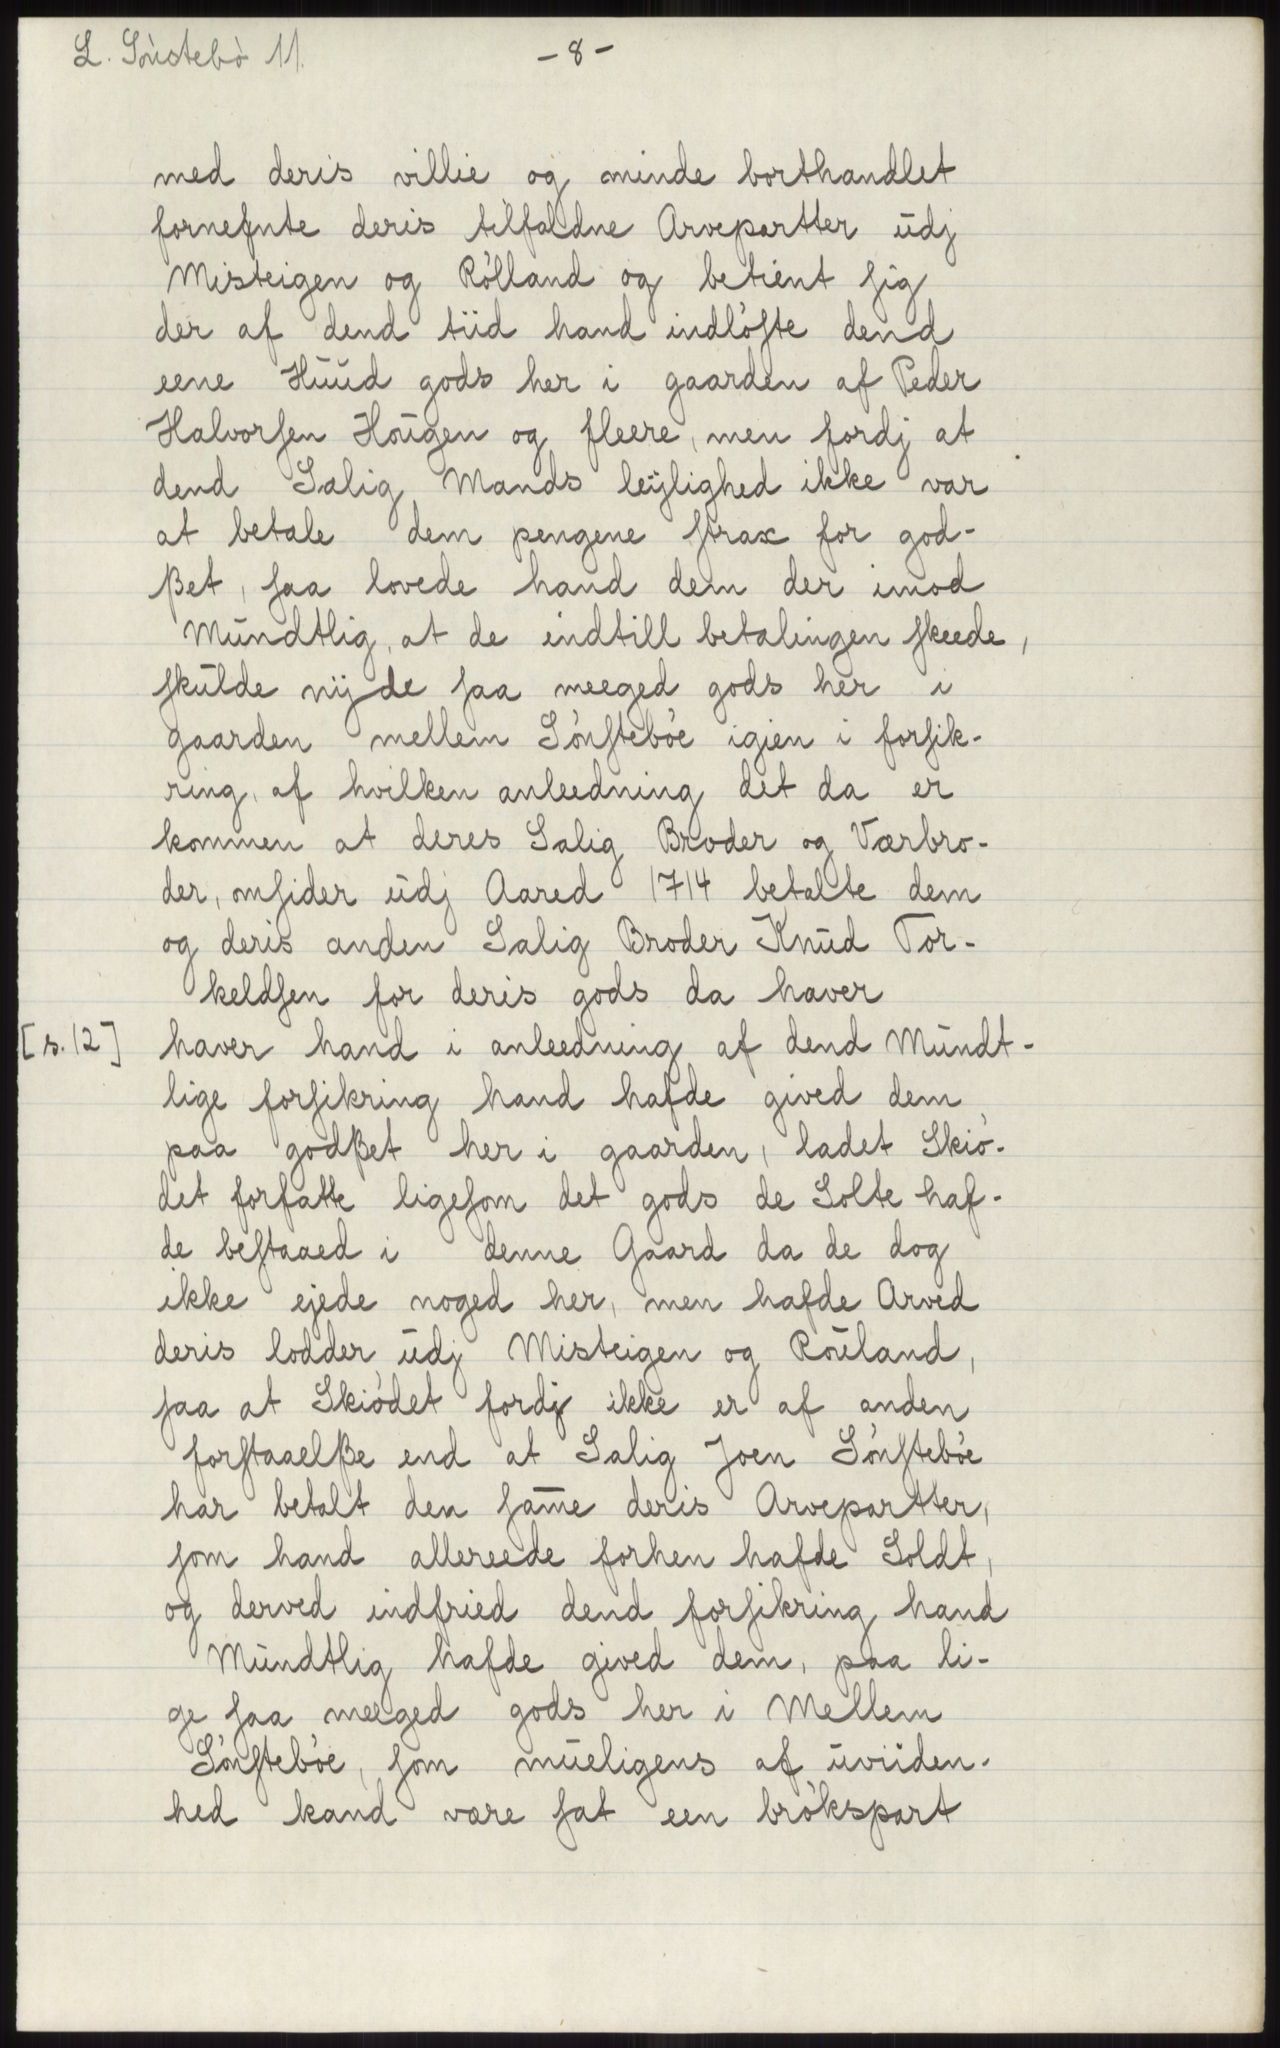 L. Sönstebö 11.
- 8 -
med deris villie og minde borthandlet
fornefnte deris tilfaldne Arvepartter udj
Misteigen og Rölland og betient sig
der af dend tiid hand indlöste dend
eene Huud gods her i gaarden af Peder
Halvorsen Hougen og fleere, men fordj at
dend Salig Mands leÿlighed ikke var
at betale dem pengene strax for god-
ßet, saa lovede hand dem der imod
Mundtlig, at de indtill betalingen skeede,
skulde nÿde saa meeged gods her i
gaarden mellem Sönsteböe igien i forsik-
ring, af hvilken anleedning det da er
kommen at deres Salig Broder og Værbro-
der, omsider udj Aared 1714 betalte dem
og deris anden Salig Broder Knud Tor-
keldsen for deris gods da haver
[s. 12] haver hand i anleedning af dend Mundt-
lige forsikring hand hafde gived dem
paa godßet her i gaarden, ladet Skiö-
det forfatte ligesom det gods de Solte haf-
de bestaaed i denne Gaard da de dog
ikke ejede noged her, men hafde Arved
deris lodder udj Misteigen og Röuland,
saa at Skiödet fordj ikke er af anden
forstaaelße end at Salig Joen Sönsteböe
har betalt den sam̄e deris Arvepartter,
som hand allereede forhen hafde Soldt,
og derved indfried dend forsikring hand
Mundtlig hafde gived dem, paa li-
ge saa meeged gods her i Mellem
Sönsteböe, som mueligens af uviiden-
hed kand være sat een brökspart